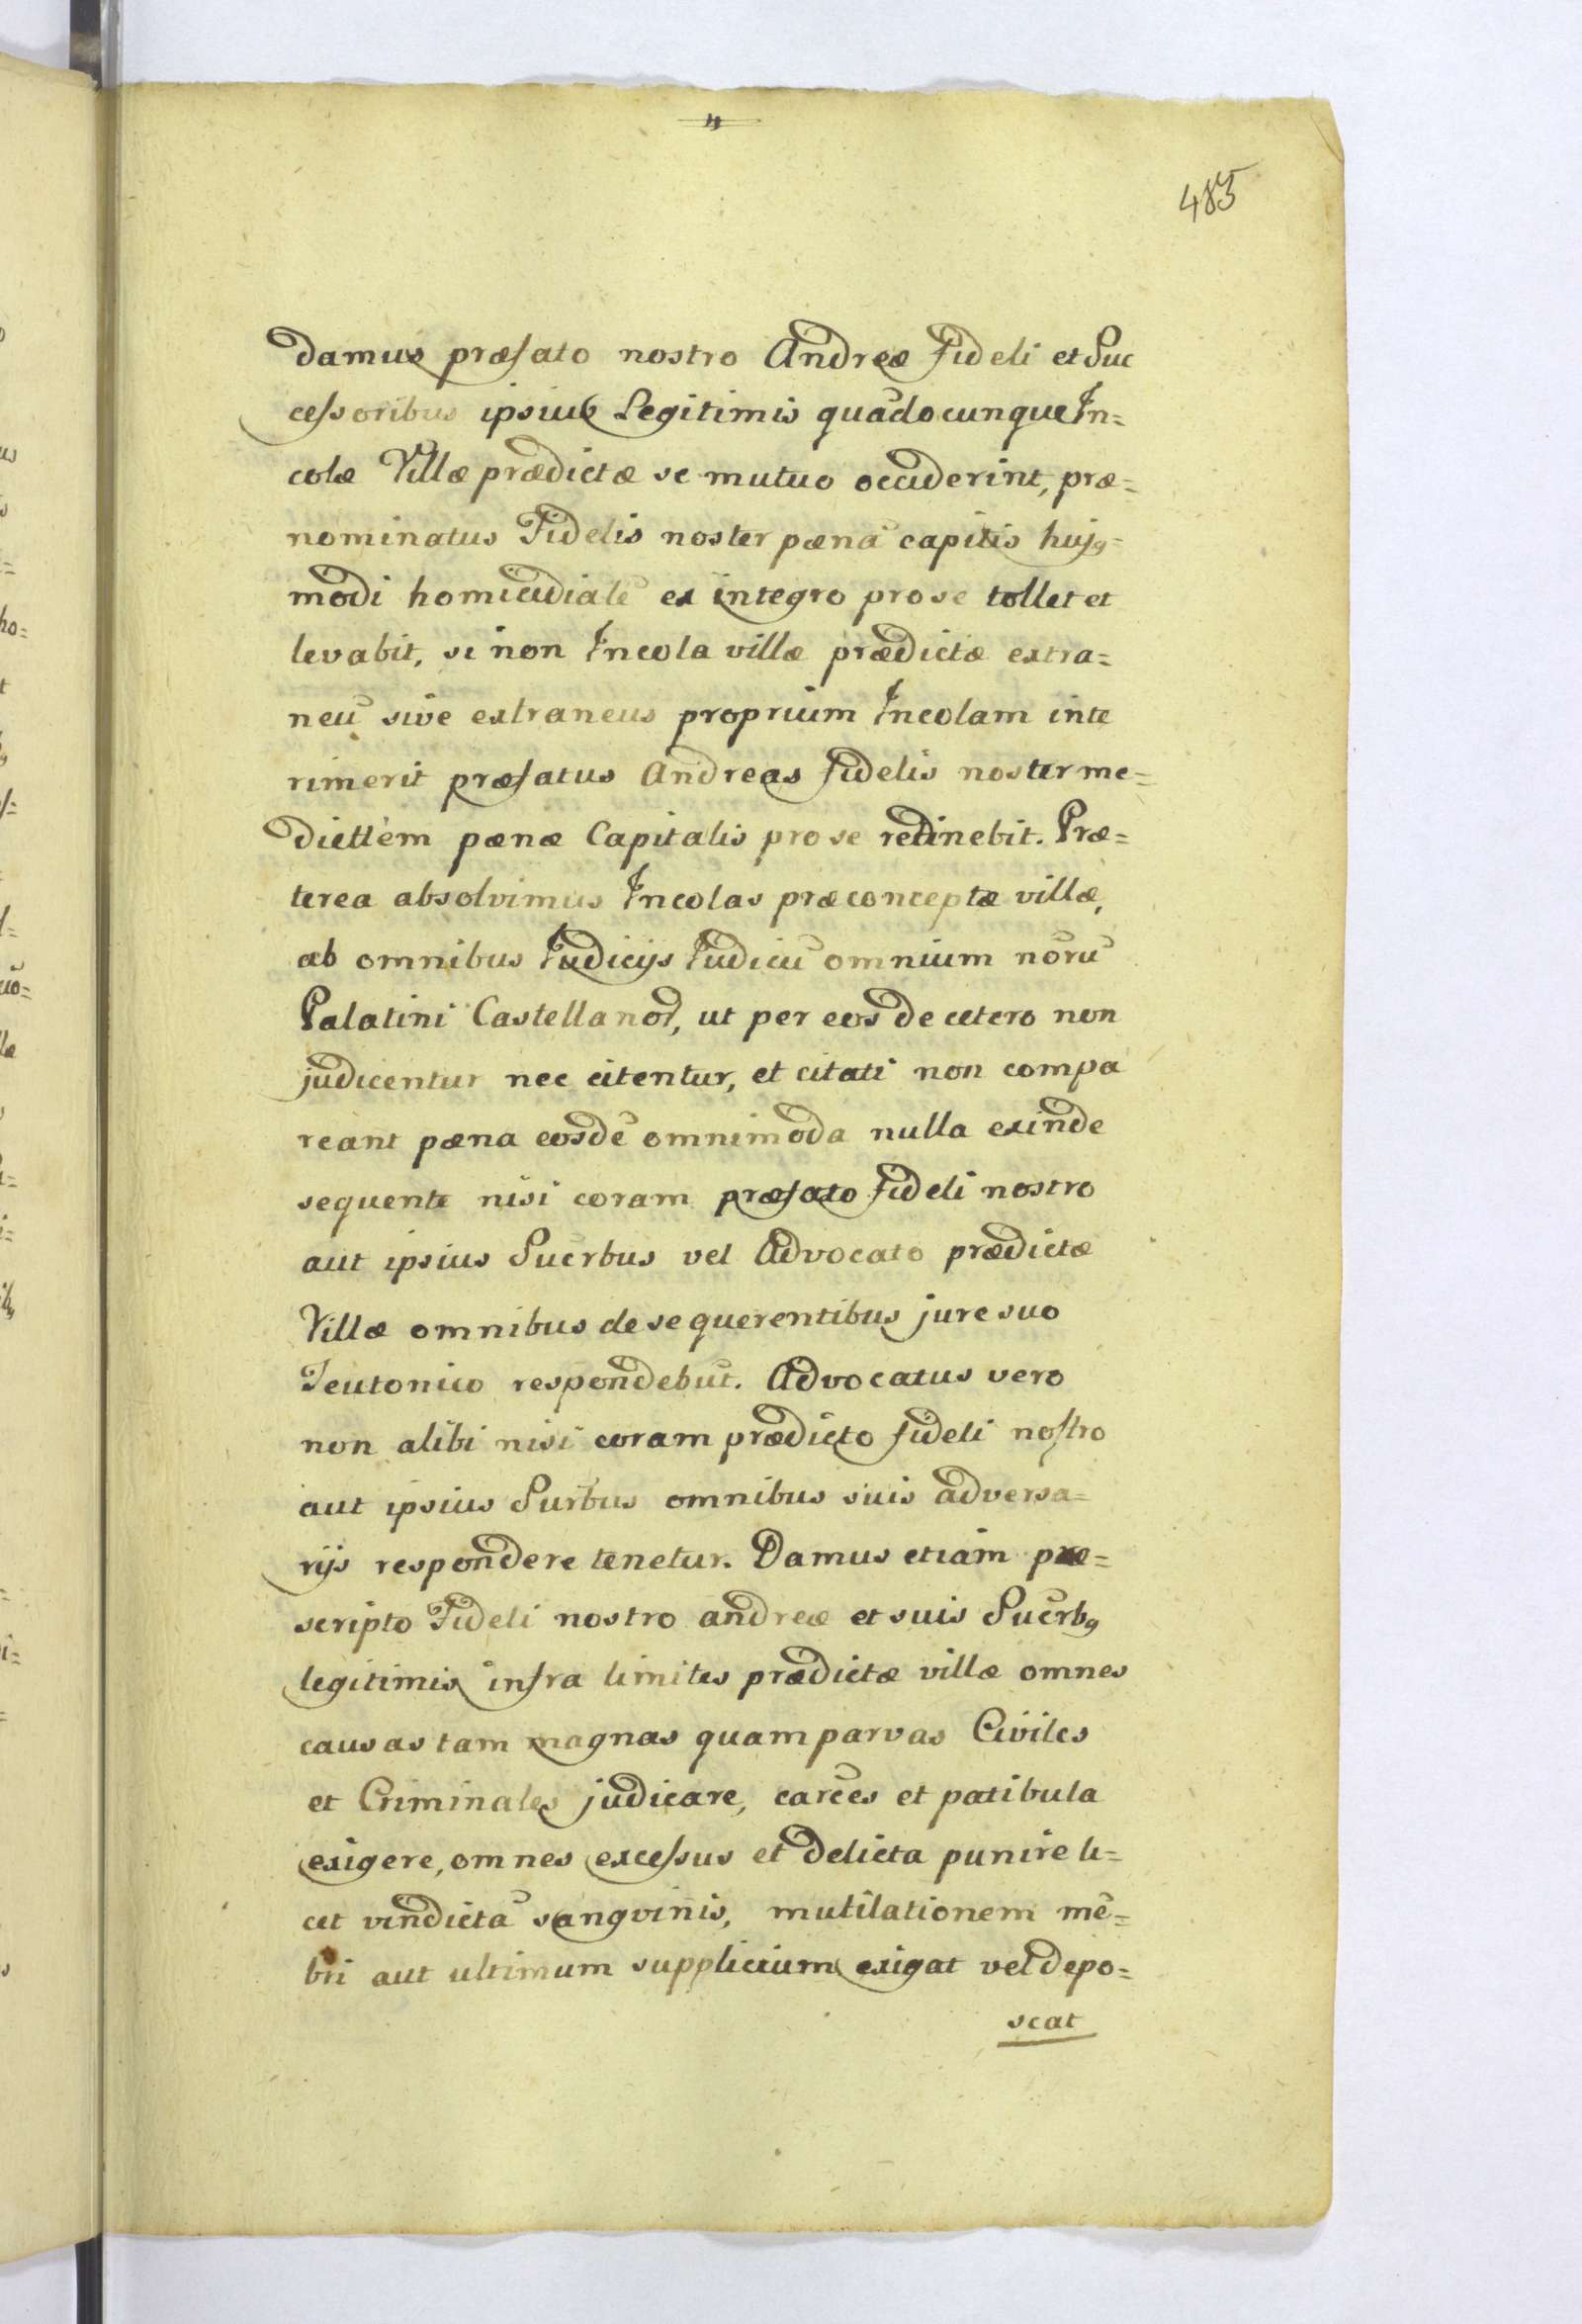 4
485
damus præfato nostro Andreæ Fideli et Suc
cessoribus ipsius Legitimis quãdocunque In=
colæ Villæ prædictæ se mutuo occiderint, præ=
nominatus Fidelis noster pænã capitis huj9=
modi homicidialẽ ex integro pro se tollet et
levabit, si non Incola villæ prædictæ extra=
neũ sive extraneus proprium Incolam inte
rimerit præfatus Andreas fidelis noster me=
diettem pænæ Capitalis pro se retinebit. Præ=
terea absolvimus Incolas præconceptæ villæ,
ab omnibus Iudicijs Iudicũ omnium norũ
Palatini Castellanor, ut per eos de cetero non
judicentur nec citentur, et citati non compa
reant pæna eosdẽ omnimoda nulla exinde
sequente nisi coram præfato Fideli nostro
aut ipsius Sucrbus vel Advocato prædictæ
Villæ omnibus de se querentibus jure suo
Teutonico respondebũt. Advocatus vero
non alibi nisi coram prædicto fideli nostro
aut ipsius Surbus omnibus suis adversa=
rijs respondere tenetur. Damus etiam præ=
scripto Fideli nostro andreæ et suis Sucrb9
legitimis infra limites prædictæ villæ omnes
causas tam magnas quam parvas Civiles
et Criminales judicare, carc̃es et patibula
exigere, omnes excessus et delicta punire li=
cet vindictã sangvinis, mutilationem mẽ=
bri aut ultimum supplicium exigat vel depo=
scat